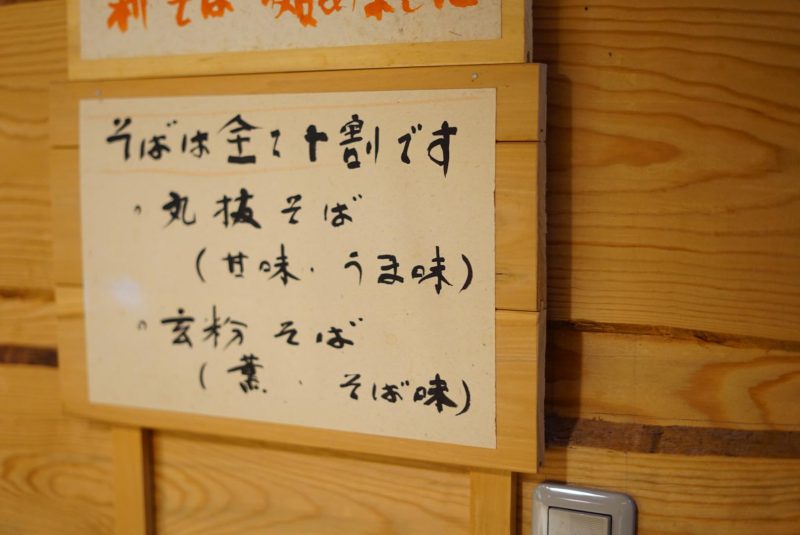 新そば 始めました
そばは全て十割です
。丸抜そば
(甘味・うま味)
。玄粉そば
(薫・そば味)